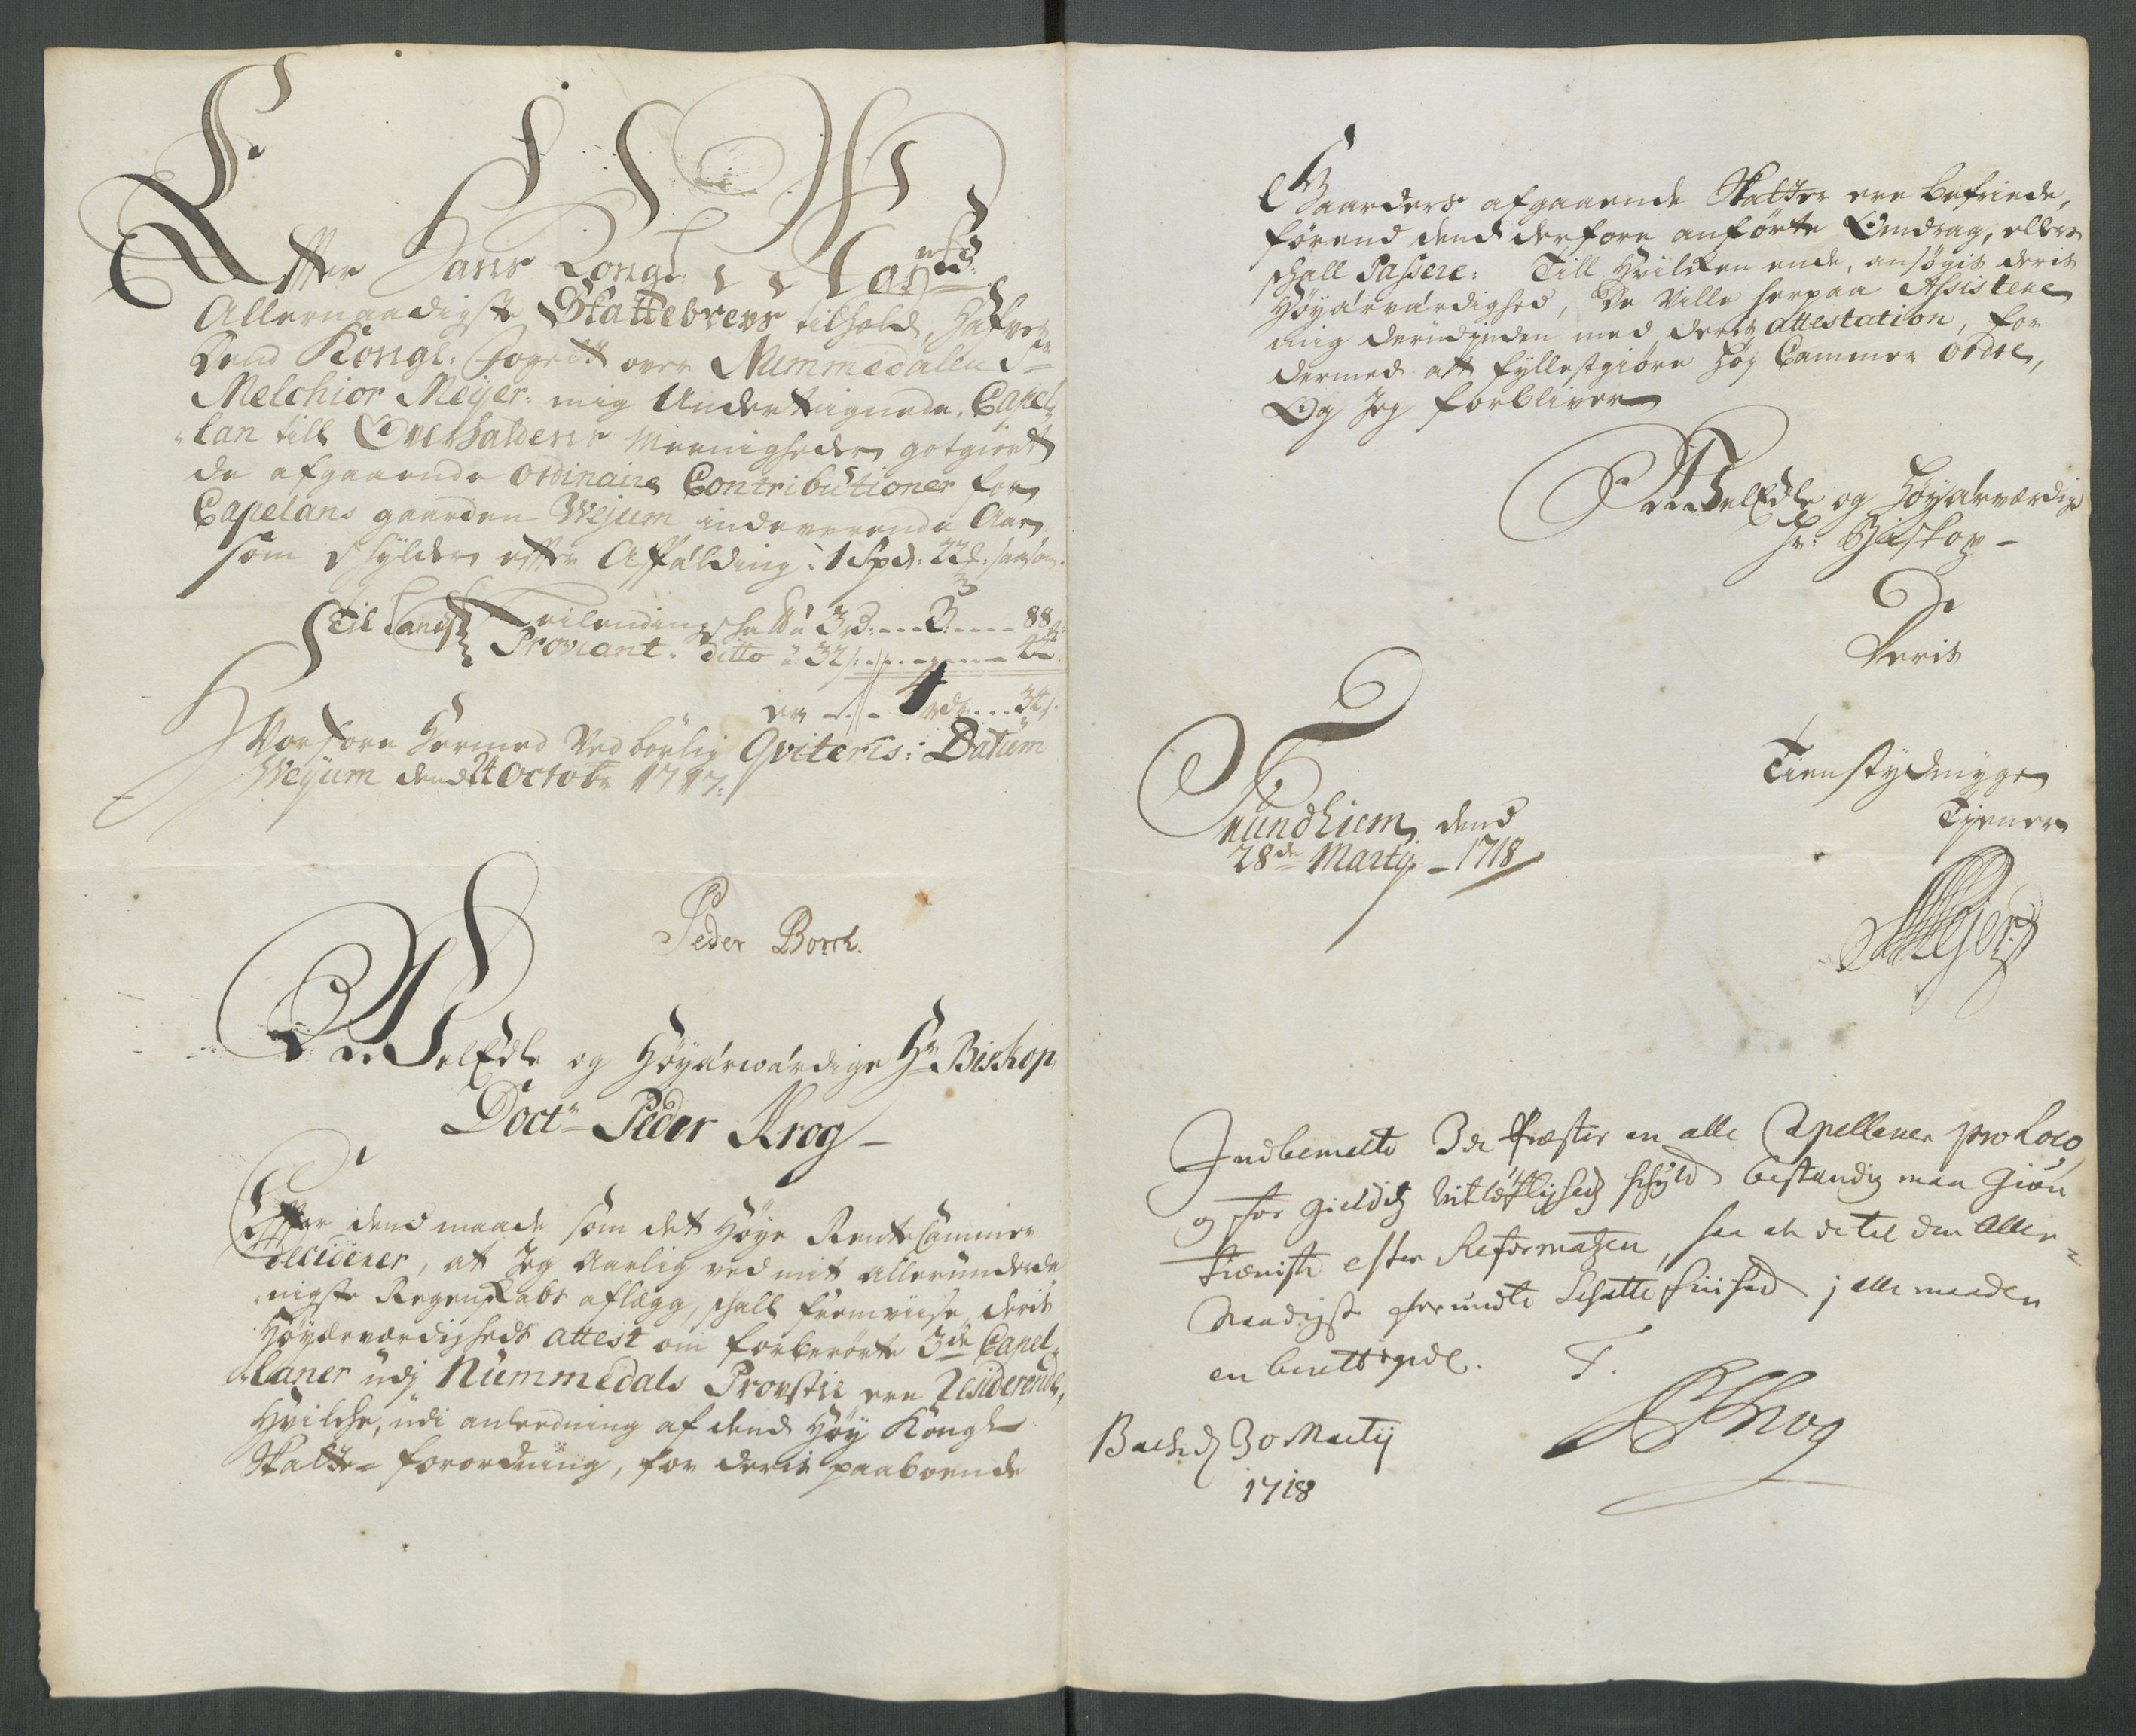 Effter Hans Kongl: Mayts:
Allernaadigste Skattebrevs tilhold, Hafver
Kongl. Fogett over Nummedallen Sr
Melchior Meyer: mig Underteignede, Capel-
lan till Overhaldens Meenigheder gotgiort
de afgaaende ordinaire Contributioner for
Capelans gaarden Wejum indeverende Aar
som schylder effter Affälding: 1 Spd: 22
Til Landsk: Leilending schatt á 3 3 88
Proviant. ditto á 32 s: 42
er 4 rdr 34 s.
Hvorfore Hermed Ved børlig Qviteris: Datum
Wejum dend 24 Octobr 1717:
Peder Borch.
Vel Edle og Høyärwärdige Hr Biskop
Doctr Peder Krog
Efter dend maade som det Høye Rente Cammer
decidener, at Jeg Aarlig ved mit allerunderda
nigste Regenskabs aflægg, schall fremviise deris
Høyærværdigheds attest om forberørte 3de Capel-
laner udj Nummedals Provstie ere Residerende,
Hvilche, udi anleedning af dend Høy Kongl
Skatte-forordning, for deris paaboende
Gaarders afgaaende Skatter ere befriede,
førend dend derfore anførte Omdrag, ellers
schall Passere: Till Hvilcken ende, ansøgis deris
Høyärvärdighed, De Ville herpaa Assistere
mig derudjnden med deris attestation, for
dermed att fyllestgiøre Høy Cammer ordre,
Og Jeg forbliver
Vel Edle og Høyärværdige
Hr: Biskop
Deris
Tienstydmyge
Tjener
Trundhiem dend
28de Martij 1718
MMejer
Indbemelte 3de Præster er alle Capellaner pro Loco
og for gieldetz Vitløftighedz schyld bestandig maa giøre
Tieniste efter Reformatzen, saa at de til den Aller-
Naadigst forundte Schatte friihed j alle maader
er berettigede. T.
PKrog
Bach d 30 Martij
1718